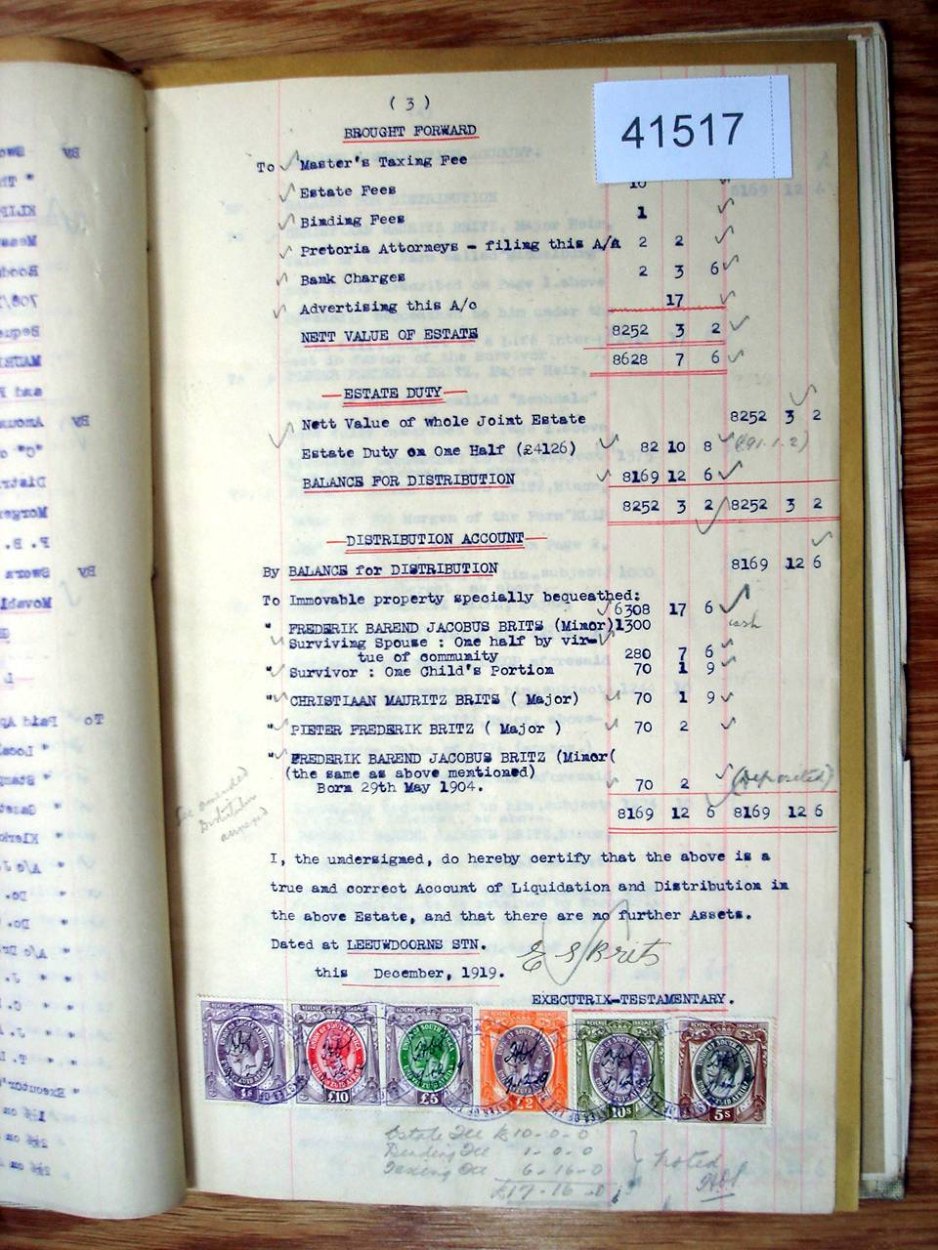 (3)
41517
BROUGHT FORWARD
To Master's Taxing Fee
Estate Fees 10
Binding Fees 1
Pretoria Attorneys - filing this A/A 2 2
Bank Charges 2 3 6
Advertising this A/c 17
NETT VALUE OF ESTATE 8252 3 2
8628 7 6
ESTATE DUTY
Nett Value of whole Joint Estate 8252 3 2
Estate Duty on One Half (£4126) 82 10 8 (£91.1.2)
BALANCE FOR DISTRIBUTION 8169 12 6
8252 3 2 8252 3 2
DISTRIBUTION ACCOUNT
By BALANCE for DISTRIBUTION 8169 12 6
To Immovable property specially bequeathed: 6308 17 6
" FREDERIK BAREND JACOBUS BRITS (Minor) 1300 cash
" Surviving Spouse : One half by vir-
tue of community 280 7 6
" Survivor : One Child's Portion 70 1 9
" CHRISTIAAN MAURITZ BRITS ( Major) 70 1 9
" PIETER FREDERIK BRITZ ( Major ) 70 2
" FREDERIK BAREND JACOBUS BRITZ (Minor(
(the same as above mentioned)
Born 29th May 1904. 70 2 (Deposited)
8169 12 6 8169 12 6
See amended
Distribution
annexed
I, the undersigned, do hereby certify that the above is a
true and correct Account of Liquidation and Distribution in
the above Estate, and that there are no further Assets.
Dated at LEEUWDOORNS STN.
E S Brits
this December, 1919.
EXECUTRIX-TESTAMENTARY.
£10 £5 £2 10s 5s
Estate Fee £10-0-0
Binding Fee 1-0-0
Taxing Fee 6-16-0
£17-16-0
Noted